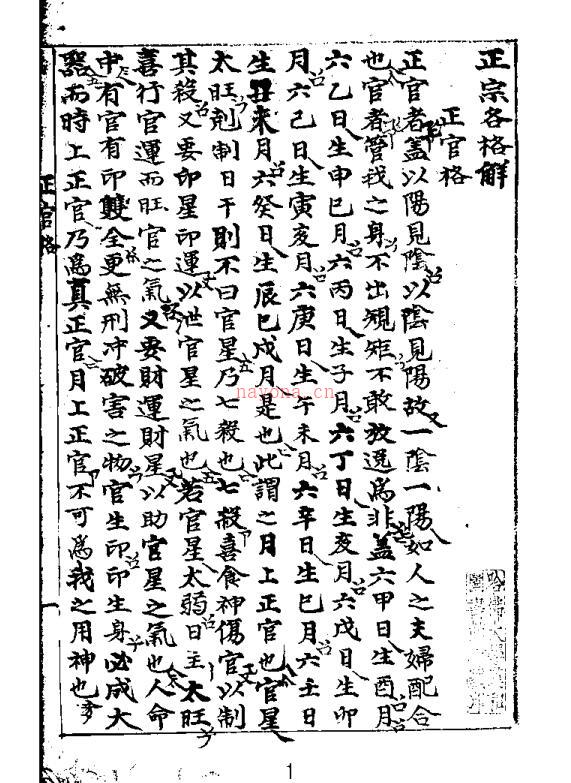 正宗各格解
正官格
正官者盖以陽見陰以陰見陽故一陰一陽如人之夫婦配合
也官者管我之身不出規矩不敢放逸爲非盖六甲日生酉月
六乙日生申巳月六丙日生子月六丁日生亥月六戊日生卯
月六己日生寅亥月六庚日生午未月六辛日生巳月六壬日
生丑未月六癸日生辰巳戌月是也此謂之月上正官也官星
太旺剋制日干則不曰官星乃七殺也七殺喜食神傷官以制
其殺又要印星印運以泄官星之氣也若官星太弱日主太旺
喜行官運而旺官之氣又要財運財星以助官星之氣也人命
中有官有印雙全更無刑冲破害之物官生印印生身必成大
器而時上正官乃爲真正官月上正官不可爲我之用神也
正官格
nayona.cn
1